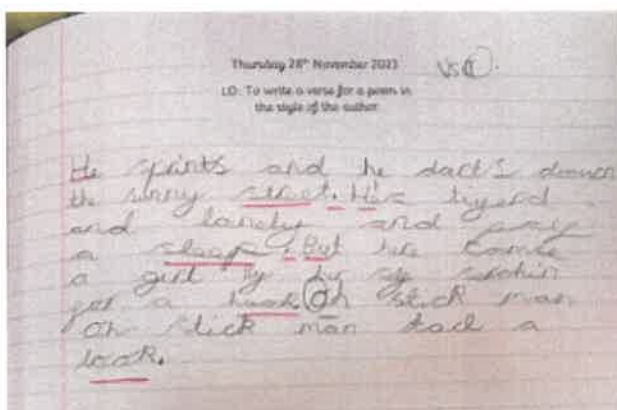 Thursday 28th November 2023
LO: To write a verse for a poem in
the style of the author
He sprints and he dart's down
the sunny street. He's tygerd
and lonely and
a sleep. But here comes
a girl
for a hook. Oh stick man
oh stick man tack a
look.